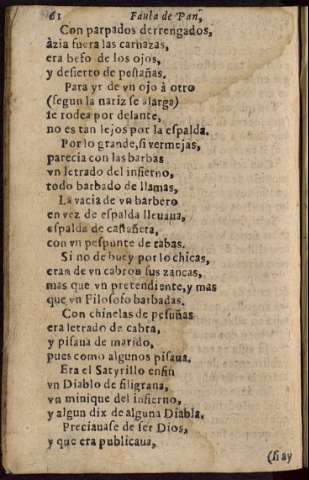 61 Faula de Pan,
Con parpados derrengados,
àzia fuera las carnazas,
era befo de los ojos,
y desierto de pestañas.
Para yr de vn ojo à otro
(segun la nariz se alarga)
le rodea por delante,
no es tan lejos por la espalda.
Por lo grande, si vermejas,
parecia con las barbas
vn letrado del infierno,
todo barbado de llamas,
La vacia de vn barbero
en vez de espalda lleuaua,
espalda de castañera,
con vn pespunte de tabas.
Si no de buey por lo chicas,
eran de vn cabron sus zancas,
mas que vn pretendiente, y mas
que vn Filosofo barbadas.
Con chinelas de pesuñas
era letrado de cabra,
y pisaua de marido,
pues como algunos pisaua.
Era el Satyrillo enfin
vn Diablo de filigrana,
vn minique del infierno,
y algun dix de alguna Diabla.
Preciauase de ser Dios,
y que era publicaua,
(si ay